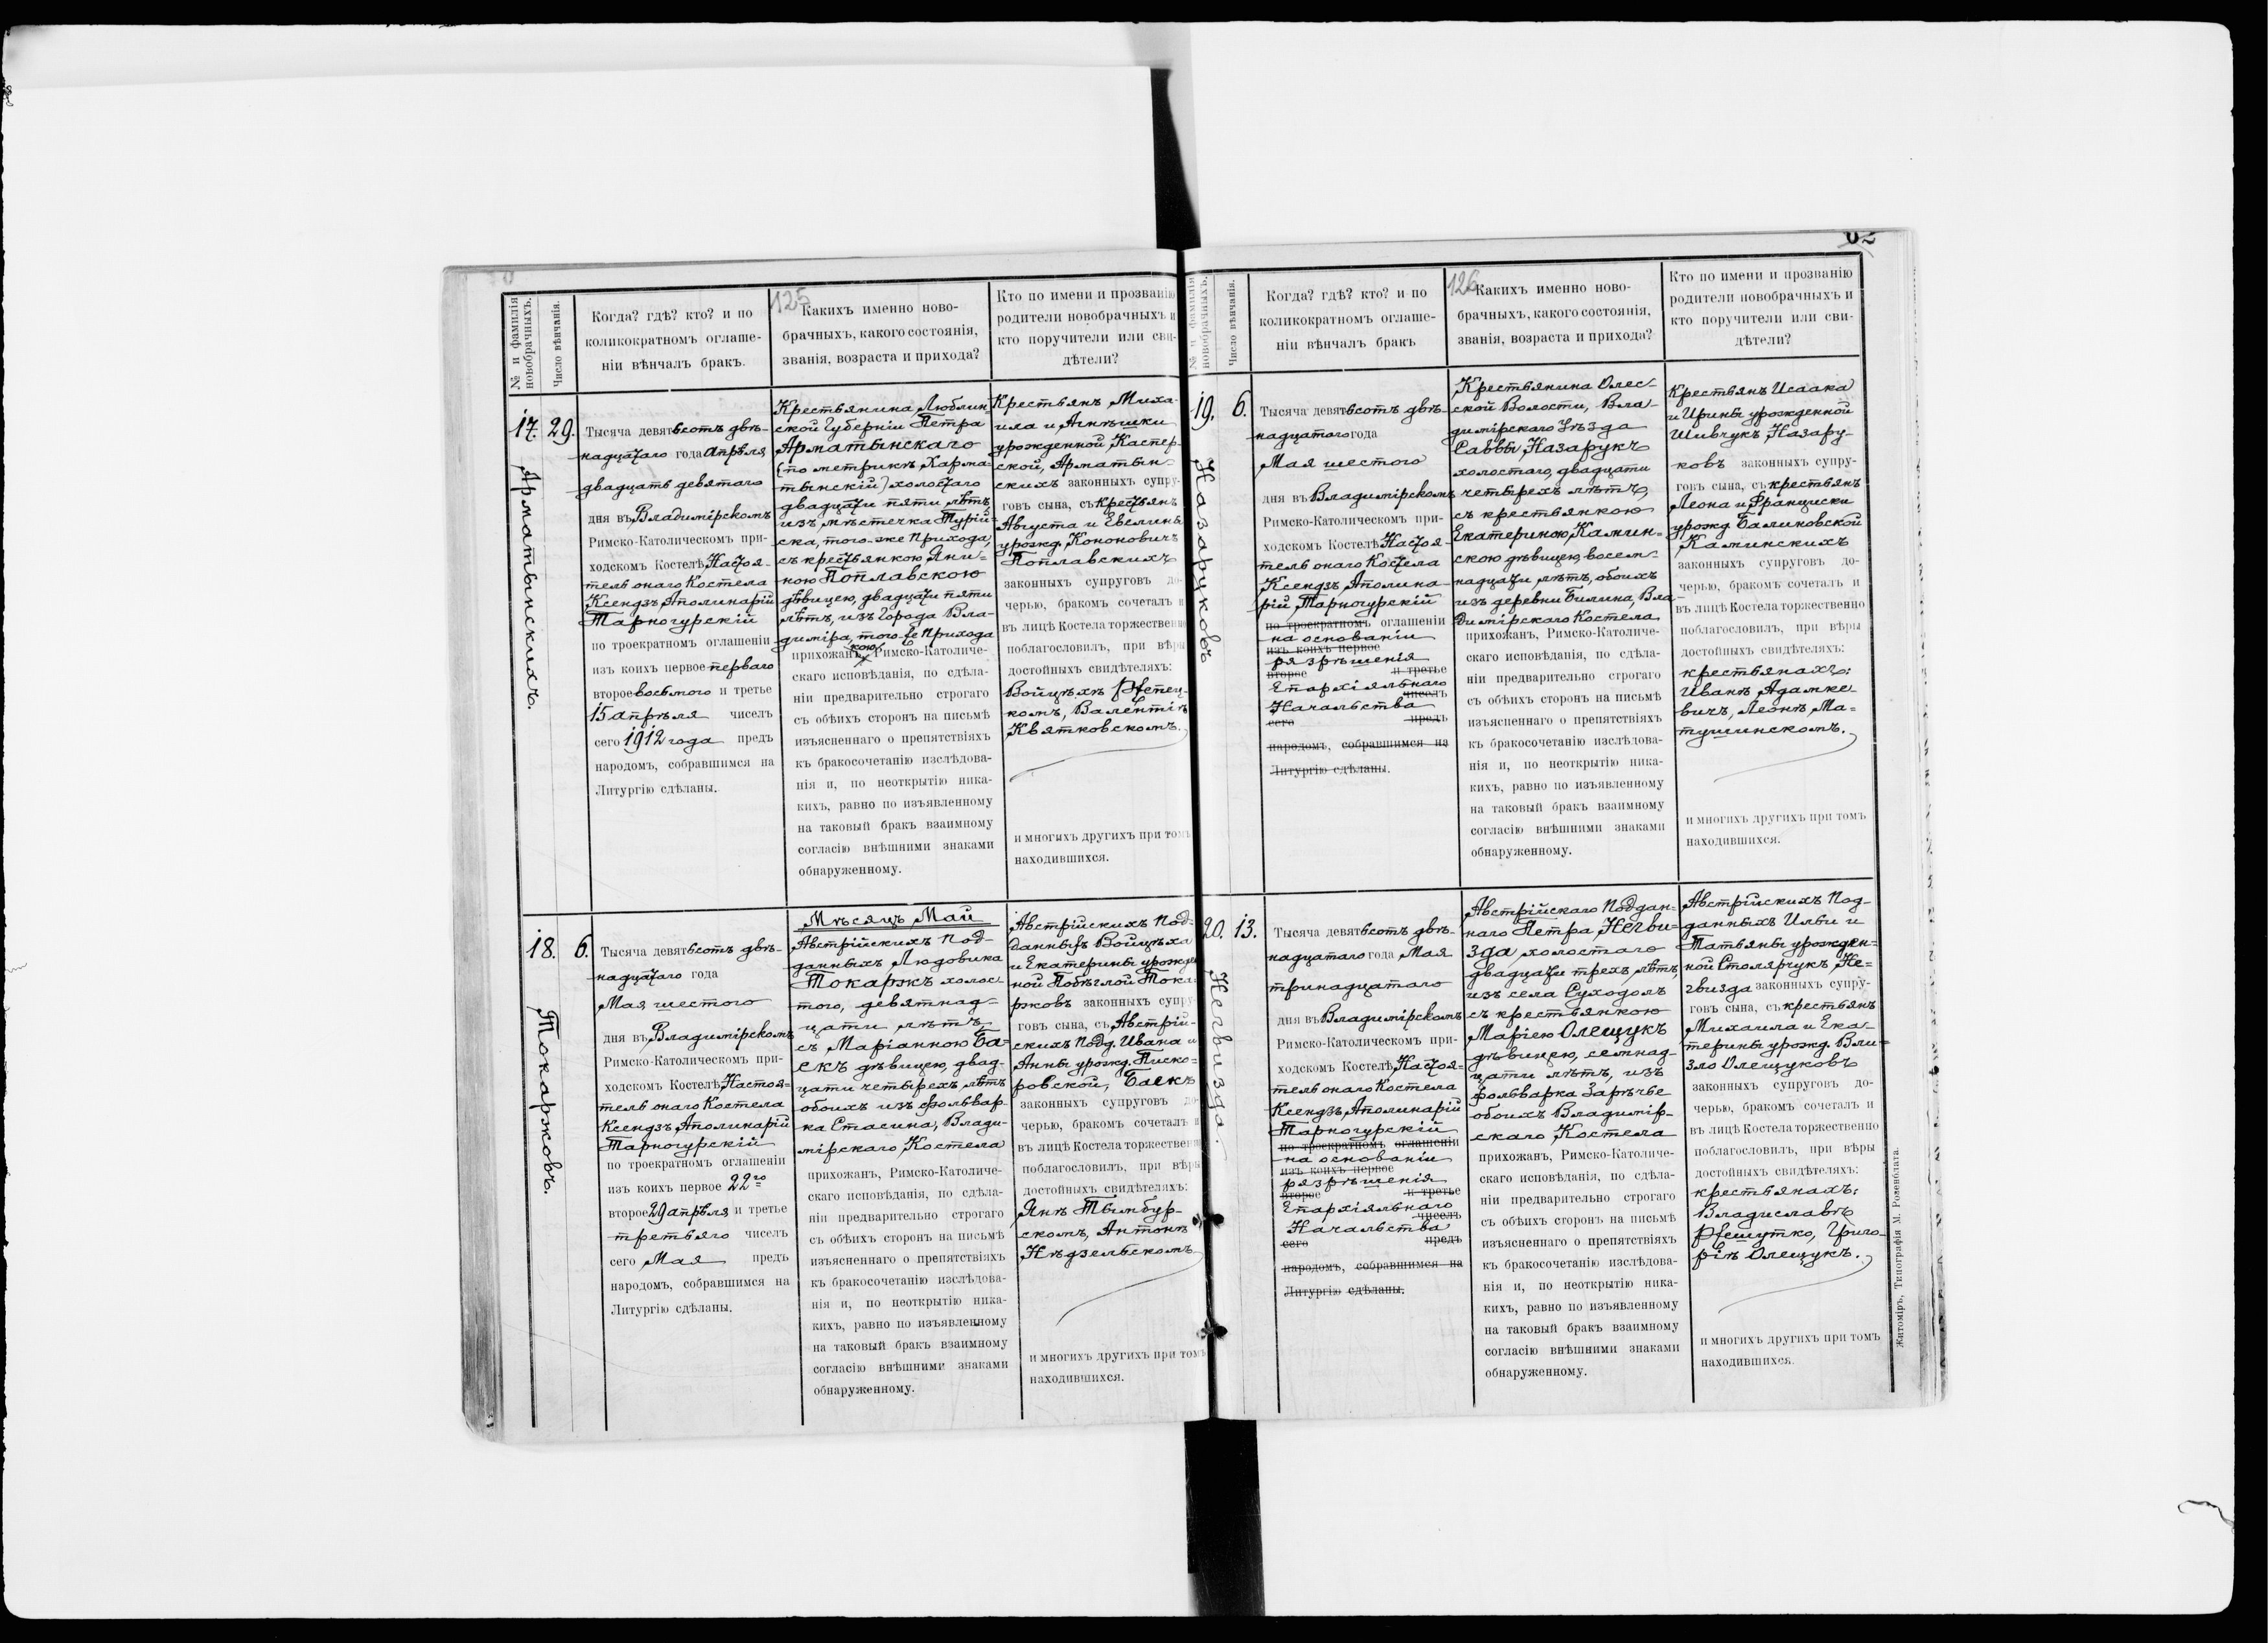 62
125
№ и фамилія
новобрачныхъ.
Число вѣнчанія.
Когда? гдѣ? кто? и по
коликократномъ оглаше-
ніи вѣнчалъ бракъ.
Какихъ именно ново-
брачныхъ, какого состоянія,
званія, возраста и прихода?
Кто по имени и прозванію
родители новобрачныхъ и
кто поручители или сви-
дѣтели?
17.
29.
Арматынскихъ.
Тысяча девятьсотъ двѣ-
надцатаго года Апрѣля
двадцать девятаго
дня въ Владимірскомъ
Римско-Католическомъ при-
ходскомъ Костелѣ Настоя-
тель онаго Костела
Ксендзъ Аполинарій
Тарногурскій
по троекратномъ оглашеніи
изъ коихъ первое перваго
второе восьмого и третье
15 апрѣля чиселъ
сего 1912 года предъ
народомъ, собравшимся на
Литургію сдѣланы.
Крестьянина Люблин-
ской Губерніи Петра
Арматынскаго
(по метрикѣ Харма-
тынскій) холостаго
двадцати пяти лѣтъ,
изъ мѣстечка Турій-
ска, того-же Прихода,
съ крестьянкою Яни-
ною Поплавскою
дѣвицею, двадцати пяти
лѣтъ, изъ города Вла-
диміра, того-же Прихода
прихожанкою, Римско-Католиче-
скаго исповѣданія, по сдѣла-
ніи предварительно строгаго
съ обѣихъ сторонъ на письмѣ
изъясненнаго о препятствіяхъ
къ бракосочетанію изслѣдова-
нія и, по неоткрытію ника-
кихъ, равно по изъявленному
на таковый бракъ взаимному
согласію внѣшними знаками
обнаруженному.
Крестьянъ Миха-
ила и Агнѣшки
урожденной Каспер-
ской, Арматын-
скихъ законныхъ супру-
говъ сына, съ крестьянъ
Августа и Евелины
урожд. Кононовичъ
Поплавскихъ
законныхъ супруговъ до-
черью, бракомъ сочеталъ и
въ лицѣ Костела торжественно
поблагословилъ, при вѣры
достойныхъ свидѣтеляхъ:
Войцѣхѣ Ржепец-
комъ, Валентіѣ
Квятковскомъ.
и многихъ другихъ при томъ
находившихся.
18.
6.
Токаржовъ.
Тысяча девятьсотъ двѣ-
надцатаго года
Мая шестого
дня въ Владимірскомъ
Римско-Католическомъ при-
ходскомъ Костелѣ Настоя-
тель онаго Костела
Ксендзъ Аполинарій
Тарногурскій
по троекратномъ оглашеніи
изъ коихъ первое 22го
второе 29 апрѣля и третье
третьяго чиселъ
сего Мая предъ
народомъ, собравшимся на
Литургію сдѣланы.
Мѣсяцъ Май
Австрійскихъ Под-
данныхъ Людовика
Токаржъ холос-
того, девятнад-
цати лѣтъ,
съ Маріанною Ба-
екъ дѣвицею, двад-
цати четырехъ лѣтъ
обоихъ изъ фольвар-
ка Стасина, Влади-
мірскаго Костела
прихожанъ, Римско-Католиче-
скаго исповѣданія, по сдѣла-
ніи предварительно строгаго
съ обѣихъ сторонъ на письмѣ
изъясненнаго о препятствіяхъ
къ бракосочетанію изслѣдова-
нія и, по неоткрытію ника-
кихъ, равно по изъявленному
на таковый бракъ взаимному
согласію внѣшними знаками
обнаруженному.
Австрійскихъ Под-
данныхъ Войцѣха
и Екатерины урожден
ной Побѣглой Тока-
ржовъ законныхъ супру-
говъ сына, съ Австрій-
скихъ Подд. Ивана и
Анны урожд. Писко-
ровской, Баекъ
законныхъ супруговъ до-
черью, бракомъ сочеталъ и
въ лицѣ Костела торжественно
поблагословилъ, при вѣры
достойныхъ свидѣтеляхъ:
Янѣ Тымбур-
скомъ, Антонѣ
Нѣдзельскомъ
и многихъ другихъ при томъ
находившихся.
126
№ и фамилія
новобрачныхъ.
Число вѣнчанія.
Когда? гдѣ? кто? и по
коликократномъ оглаше-
ніи вѣнчалъ бракъ
Какихъ именно ново-
брачныхъ, какого состоянія,
званія, возраста и прихода?
Кто по имени и прозванію
родители новобрачныхъ и
кто поручители или сви-
дѣтели?
19.
6.
Назаруковъ
Тысяча девятьсотъ двѣ-
надцатаго года
Мая шестого
дня въ Владимірскомъ
Римско-Католическомъ при-
ходскомъ Костелѣ Настоя-
тель онаго Костела
Ксендзъ Аполина-
рій Тарногурскій
по троекратномъ оглашеніи
на основаніи
изъ коихъ первое
разрѣшенія
второе и третье
Епархіяльнаго
чиселъ
Начальства
сего предъ
народомъ, собравшимся на
Литургію сдѣланы.
Крестьянина Олес-
ской Волости, Вла-
димірскаго Уѣзда
Саввы Назарукъ
холостаго, двадцати
четырехъ лѣтъ,
съ крестьянкою
Екатериною Камин-
скою дѣвицею, восем-
надцати лѣтъ, обоихъ
изъ деревни Билина, Вла-
димірскаго Костела
прихожанъ, Римско-Католиче-
скаго исповѣданія, по сдѣла-
ніи предварительно строгаго
съ обѣихъ сторонъ на письмѣ
изъясненнаго о препятствіяхъ
къ бракосочетанію изслѣдова-
нія и, по неоткрытію ника-
кихъ, равно по изъявленному
на таковый бракъ взаимному
согласію внѣшними знаками
обнаруженному.
Крестьянъ Исаака
и Ирины урожденной
Шивчукъ Назару-
ковъ законныхъ супру-
говъ сына, съ крестьянъ
Леона и Францишки
урожд. Балиновской
Каминскихъ
законныхъ супруговъ до-
черью, бракомъ сочеталъ и
въ лицѣ Костела торжественно
поблагословилъ, при вѣры
достойныхъ свидѣтеляхъ:
крестьянахъ:
Иванѣ Адамке-
вичъ, Леонѣ Ма-
тушинскомъ.
и многихъ другихъ при томъ
находившихся.
20.
13.
Негвизда.
Тысяча девятьсотъ двѣ-
надцатаго года Мая
тринадцатаго
дня въ Владимірскомъ
Римско-Католическомъ при-
ходскомъ Костелѣ Настоя-
тель онаго Костела
Ксендзъ Аполинарій
Тарногурскій
по троекратномъ оглашеніи
на основаніи
изъ коихъ первое
разрѣшенія
второе и третье
Епархіяльнаго
чиселъ
Начальства
сего предъ
народомъ, собравшимся на
Литургію сдѣланы.
Австрійскаго Поддан-
наго Петра Негви-
зда холостаго
двадцати трехъ лѣтъ,
изъ села Суходолъ
съ крестьянкою
Маріею Олещукъ
дѣвицею, семнад-
цати лѣтъ, изъ
фольварка Зарѣчье
обоихъ Владимір-
скаго Костела
прихожанъ, Римско-Католиче-
скаго исповѣданія, по сдѣла-
ніи предварительно строгаго
съ обѣихъ сторонъ на письмѣ
изъясненнаго о препятствіяхъ
къ бракосочетанію изслѣдова-
нія и, по неоткрытію ника-
кихъ, равно по изъявленному
на таковый бракъ взаимному
согласію внѣшними знаками
обнаруженному.
Австрійскихъ Под-
данныхъ Ильи и
Татьяны урожден-
ной Столярчукъ, Не-
гвизда законныхъ супру-
говъ сына, съ крестьянъ
Михаила и Ека-
терины урожд. Вли-
зло Олещуковъ
законныхъ супруговъ до-
черью, бракомъ сочеталъ и
въ лицѣ Костела торжественно
поблагословилъ, при вѣры
достойныхъ свидѣтеляхъ:
крестьянахъ:
Владиславѣ
Ржешутко, Григо-
ріѣ Олещукъ.
и многихъ другихъ при томъ
находившихся.
Житоміръ, Типографія М. Розенблата.